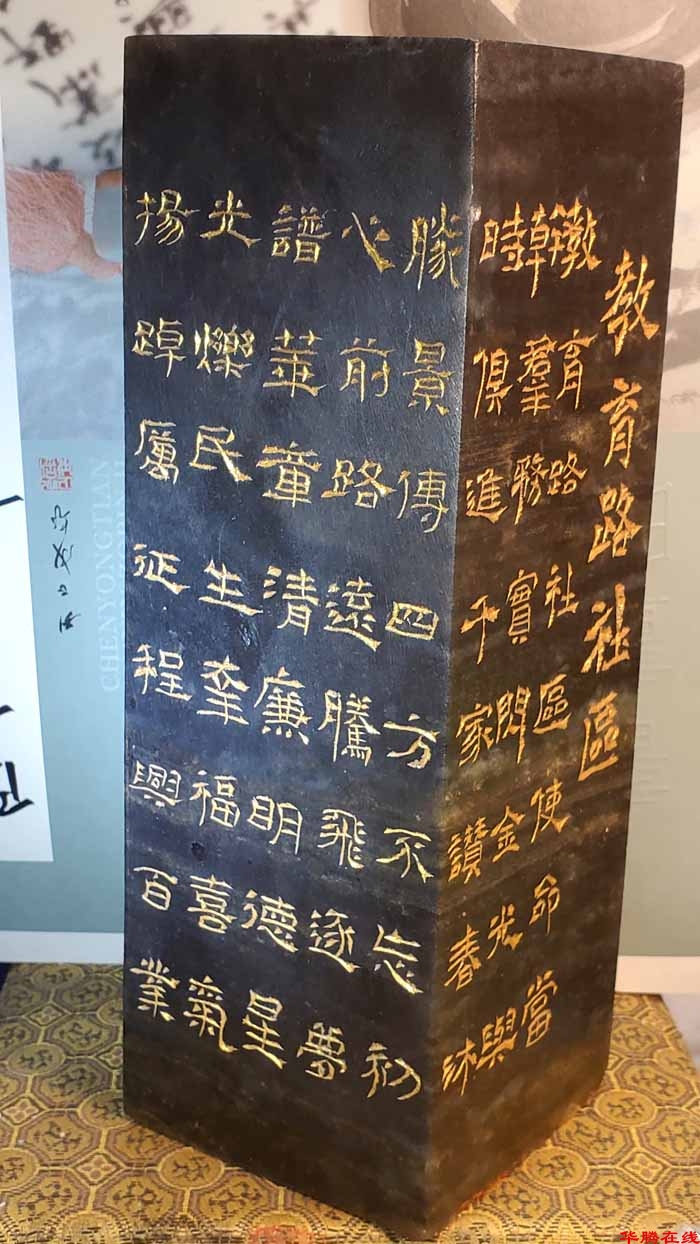 教育路社區
教育路社區使命當
幹羣務實閃金光與
時俱進千家讚春沐
勝景傳四方不忘初
心前路遠騰飛逐夢
譜華章清廉明德星
光爍民生福喜氣
揚踔厲征程興百業
CHENYONGTIAN
华腾在线